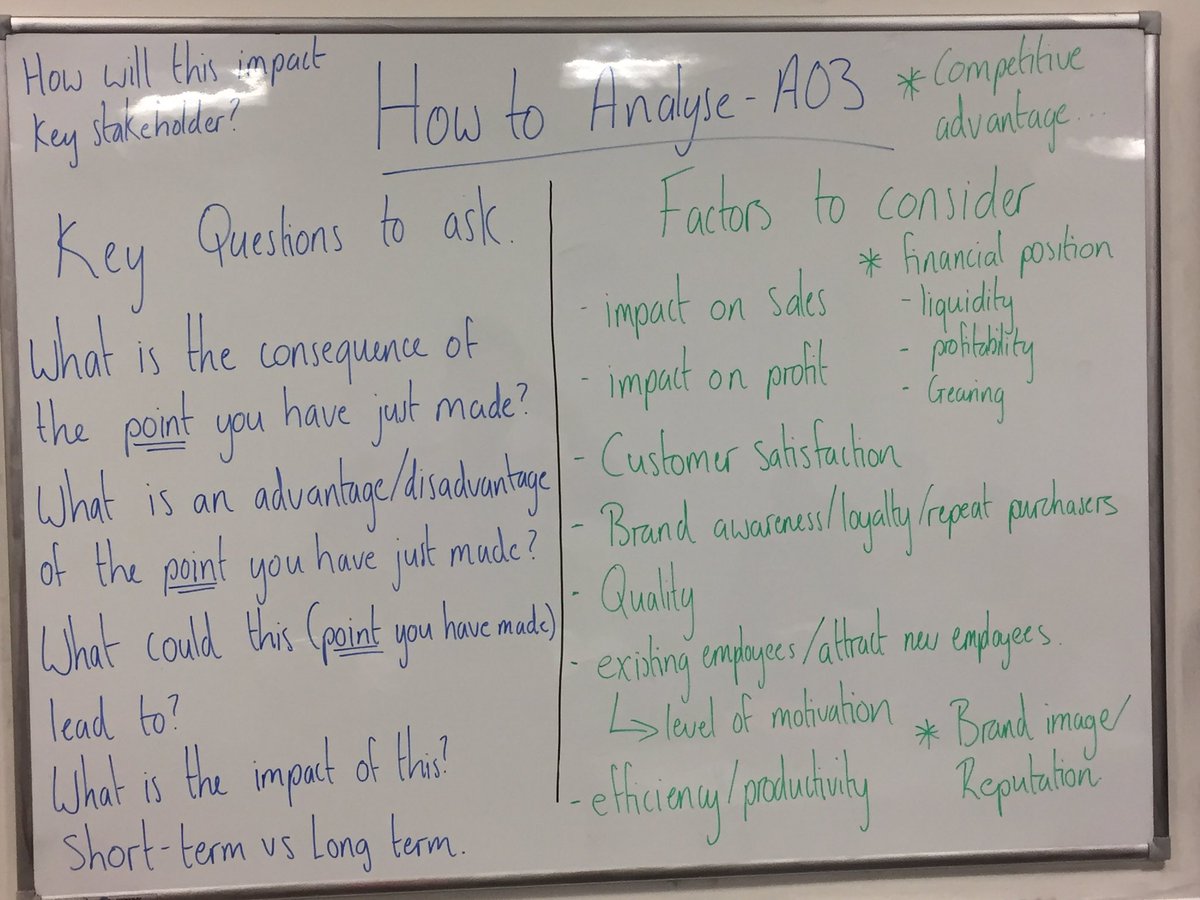 How will this impact
key stakeholder?
How to Analyse - AO3
* Competitive
advantage...
Key Questions to ask.
What is the consequence of
the point you have just made?
What is an advantage/disadvantage
of the point you have just made?
What could this (point you have made)
lead to?
What is the impact of this?
Short-term vs Long term.
Factors to consider
- impact on sales
- impact on profit
* financial position
- liquidity
- profitability
- Gearing
- Customer satisfaction
- Brand awareness/loyalty/repeat purchasers
- Quality
- existing employees/attract new employees.
↳ level of motivation
- efficiency/productivity
* Brand image/
Reputation